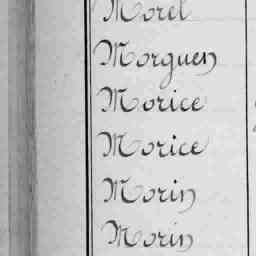 Morel
Morguen
Morice
Morice
Morin
Morin